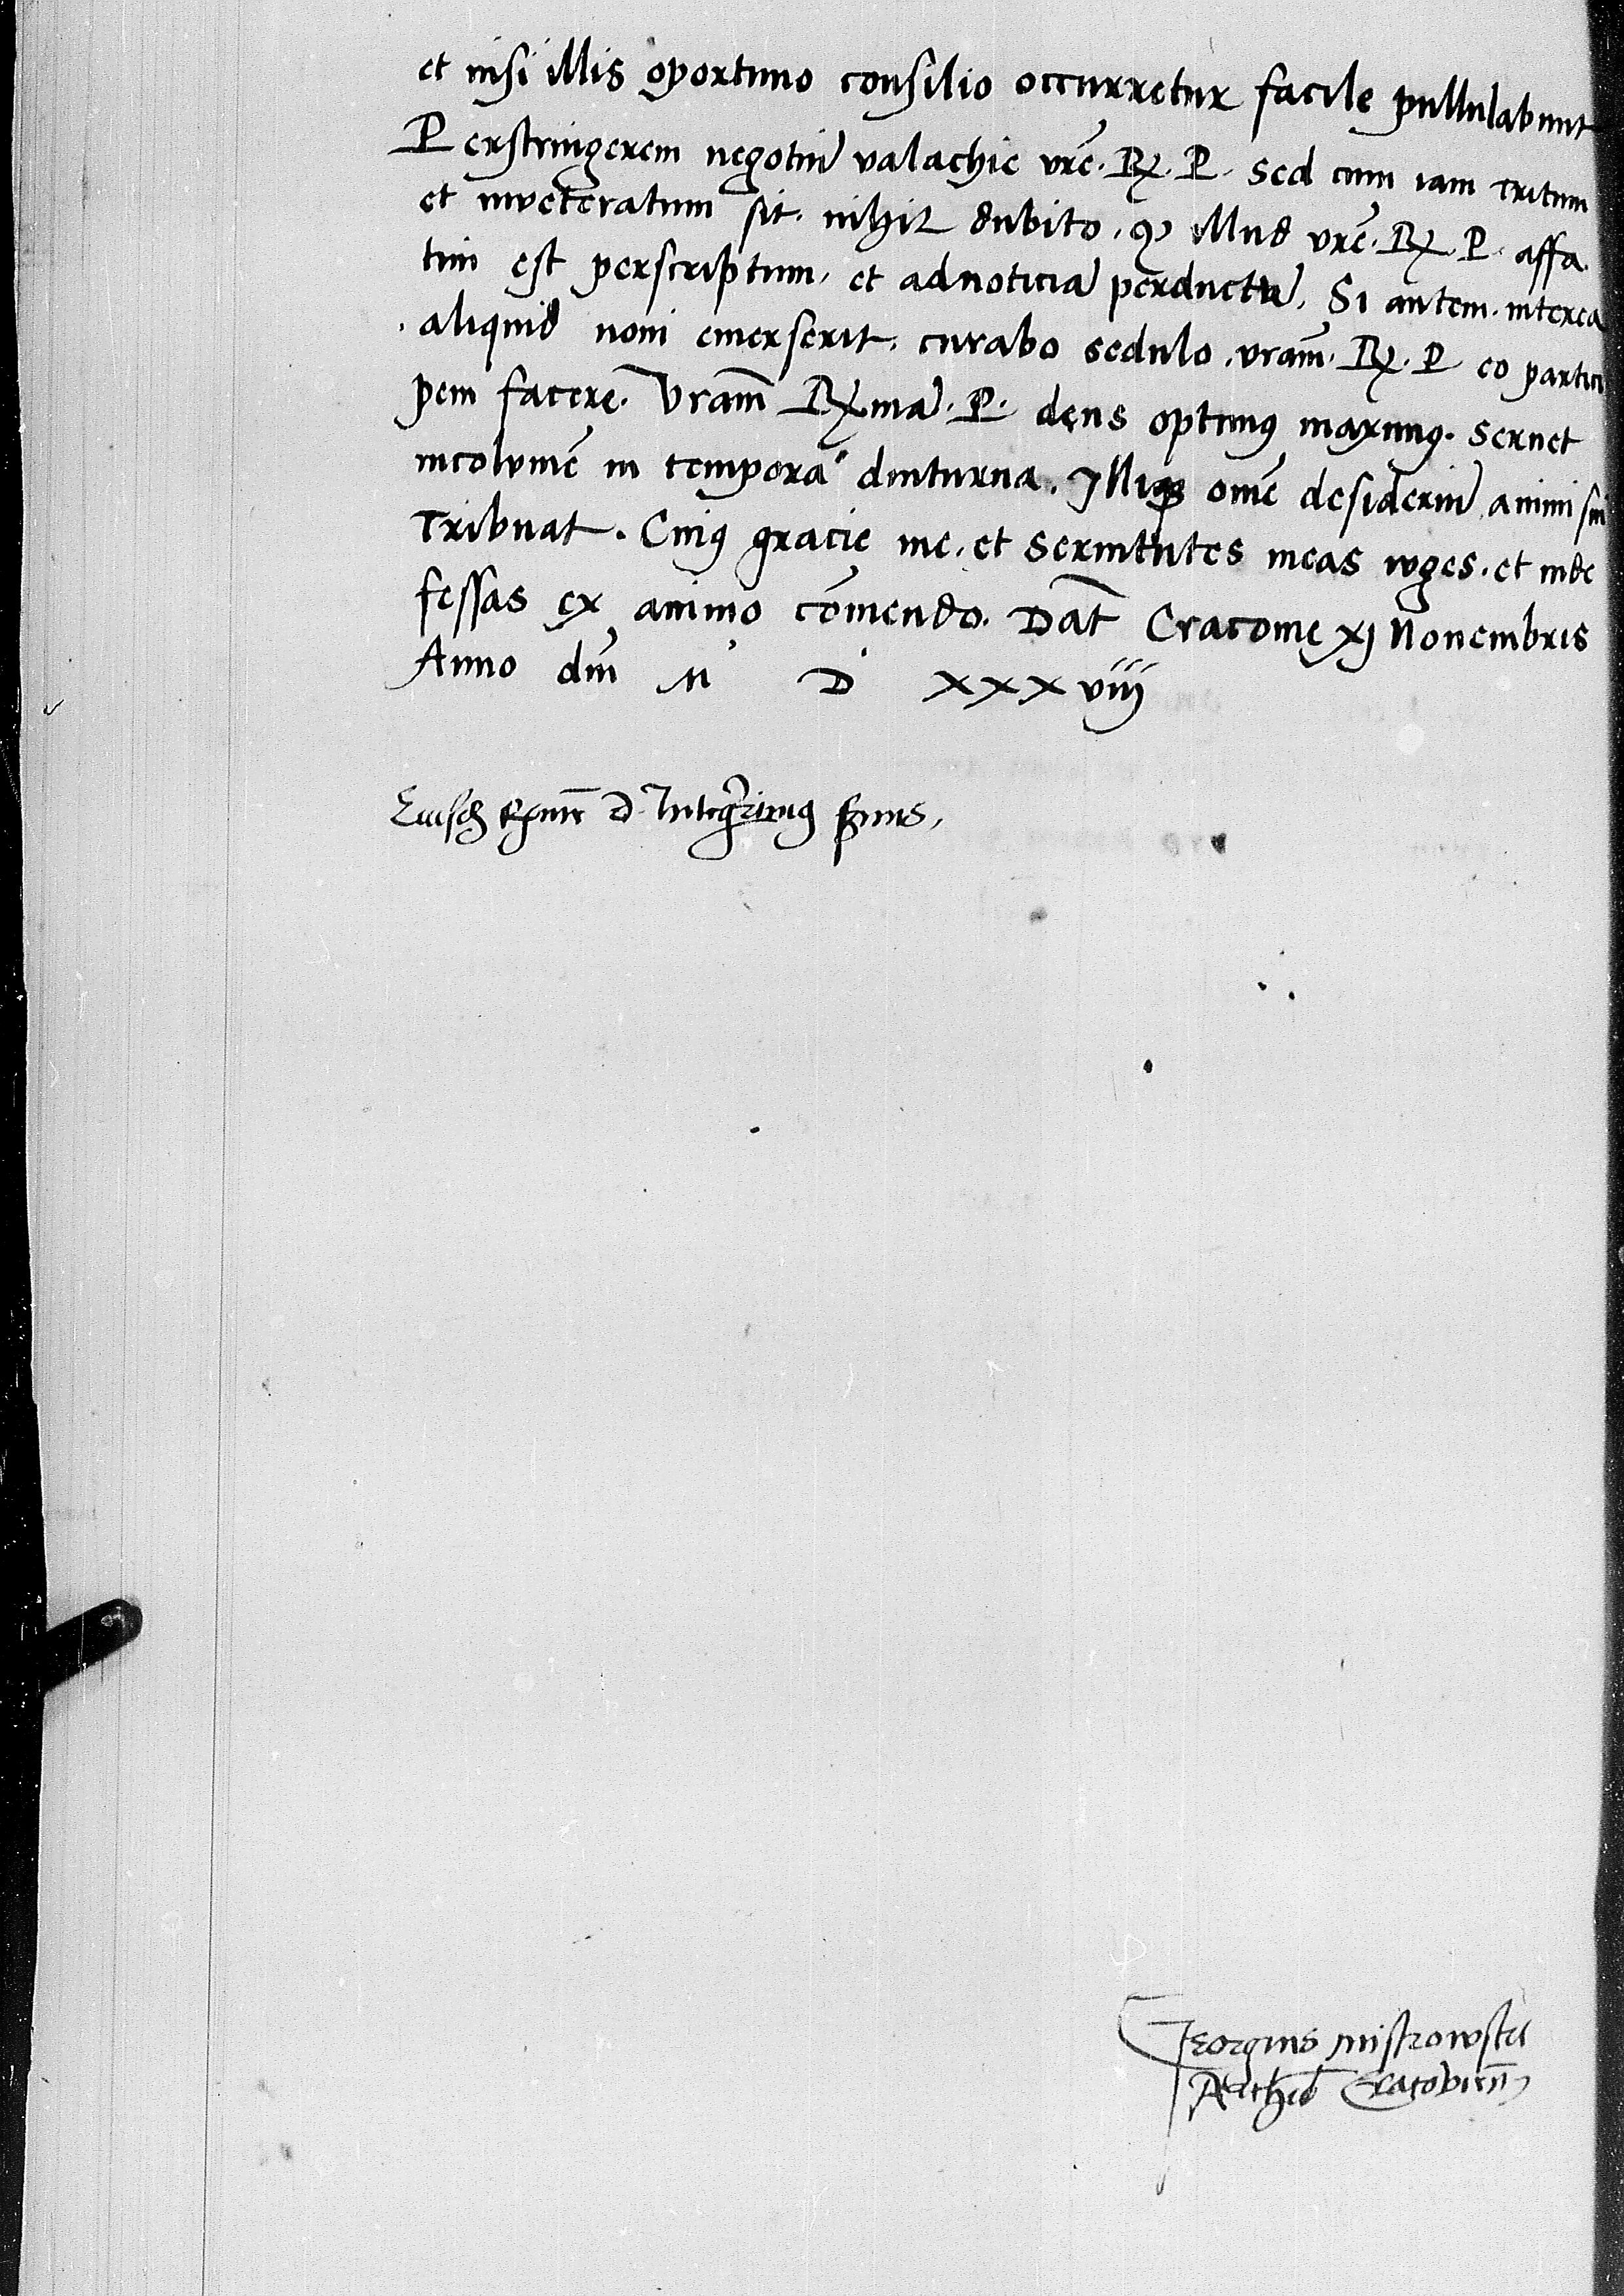 et nisi illis oportuno consilio occurretur facile pullulabunt
Perstringerem negotiũ valachie vrẽ. R. P. sed cum iam tritum
et inveteratum sit. nihil dubito. ꝙ illud vrẽ. R. P. affa
tim est perscriptum, et ad noticiã perductũ, Si autem. interea
aliquid noui emerserit. curabo sedulo. vram̃. R. P eo partici
pem facere. Vram̃ Rmã. P. deus optimꝰ maximꝰ. seruet
incolumẽ in tempora diuturna. Illiqꝫ om̃e desideriũ animi sui
Tribuat. Cuiꝰ gracie me. et seruitutes meas iuges. et inde
fessas ex animo cõmendo. Dat̃ Cracouie xj Nouembris
Anno dm̃ M D XXXviij
Eiusdẽ Rme D. Integerrimꝰ
Georgius mistrowski
Archid Cracovieñ